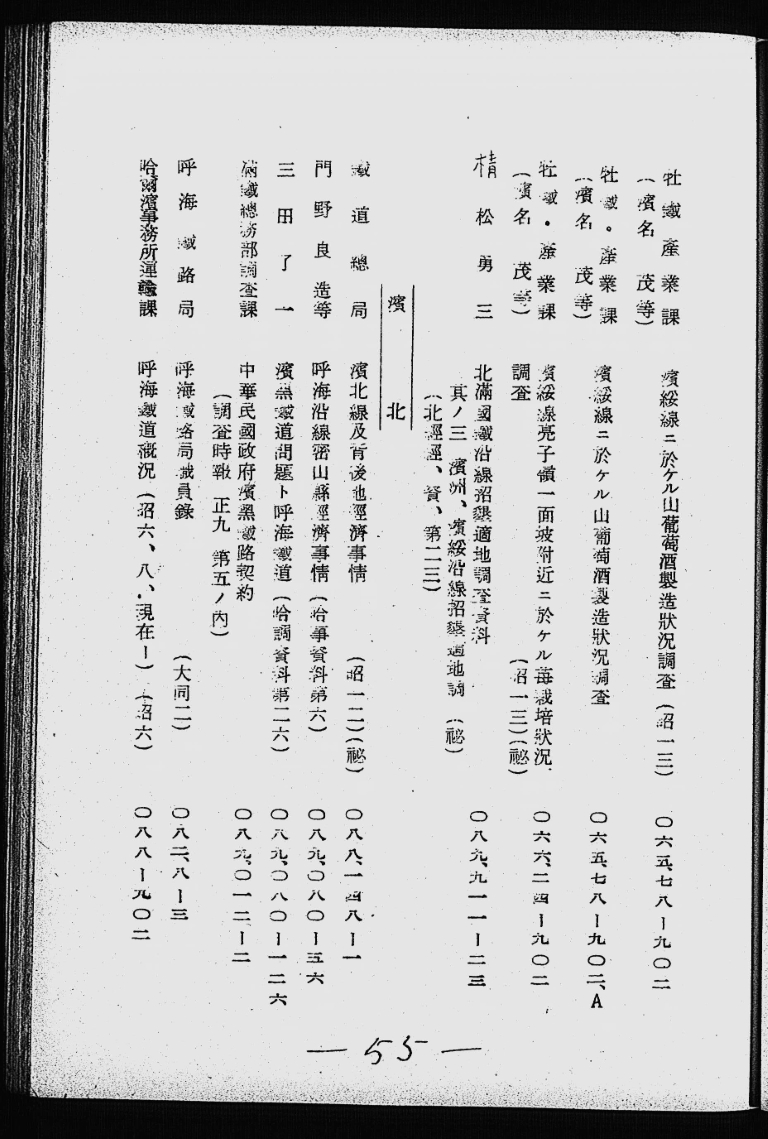 牡鐵産業課　濱綏線ニ於ケル山葡萄酒製造狀況調査（昭一三）　〇六五、七八ー九〇二
（濱名　茂等）
牡鐵。産業課　濱綏線ニ於ケル山葡萄酒製造狀況調査　〇六五、七八ー九〇二、A
（濱名　茂等）
牡鐵・産業課　濱綏線亮子嶺一面坡附近ニ於ケル苺栽培狀況　〇六六、二四ー九〇二
（濱名　茂等）　調査　（昭一三）（祕）
楕松勇三　北滿國鐵沿線招墾適地調査資料　〇八九、九一一ー二三
其ノ三　濱州、濱綏沿線招墾適地調　（祕）
（北經經、資、第二三）
濱北
鐵道總局　濱北線及背後地經濟事情　（昭一二）（祕）　〇八八、一四八ー一
門野良造等　呼海沿線密山縣經濟事情（哈事資料第六）　〇八九、〇八〇ー五六
三田了一　濱黑鐵道問題ト呼海鐵道（哈調資料第二六）　〇八九、〇八〇ー一二六
滿鐵總務部調査課　中華民國政府濱黑鐵路契約　〇八九、〇一二ー二
（調査時報　正九　第五ノ內）
呼海鐵路局　呼海鐵路局職員錄　（大同二）　〇八二、八ー三
哈爾濱事務所運輸課　呼海鐵道概況（昭六、八、現在ー）（昭六）　〇八八ー九〇二
— 55 —